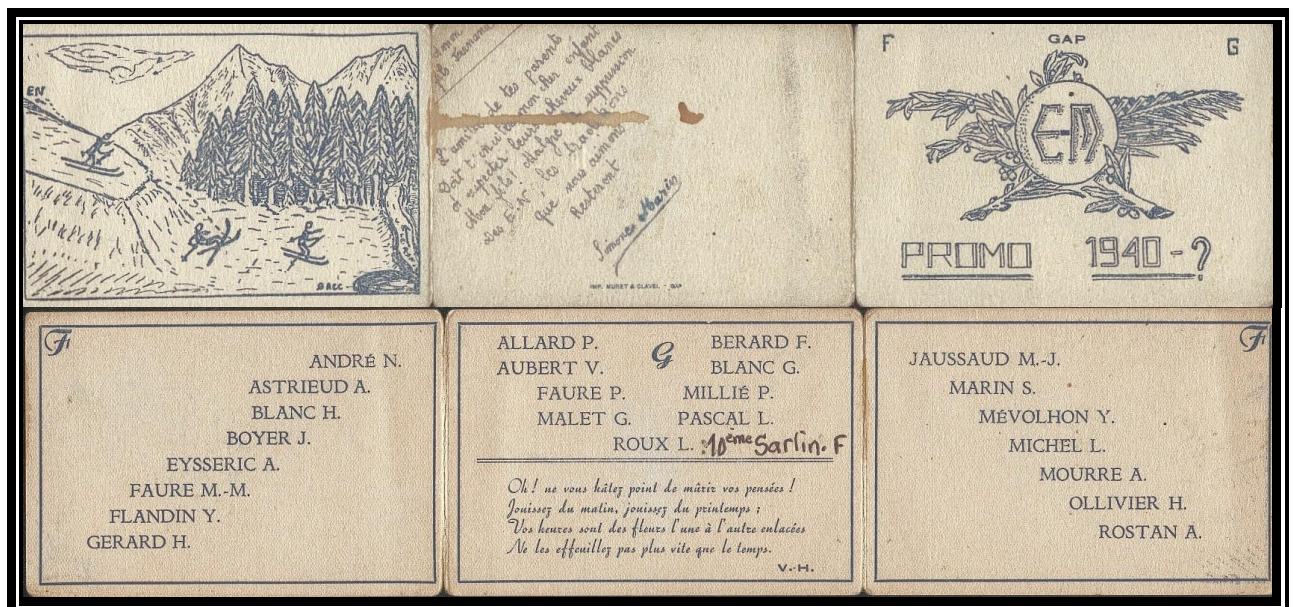 EN
BACC
L'amitié de tes parents
Doit t'inciter mon cher enfant
à respecter leurs cheveux blancs
Mon fils! Malgré la suppression
des E.N. les traditions
que nous aimons
Resteront
Simone Marin
IMP. MURET & CLAVEL - GAP
F GAP G
E-M
PROMO 1940-?
F
ANDRÉ N.
ASTRIEUD A.
BLANC H.
BOYER J.
EYSSERIC A.
FAURE M.-M.
FLANDIN Y.
GERARD H.
G
ALLARD P. BERARD F.
AUBERT V. BLANC G.
FAURE P. MILLIÉ P.
MALET G. PASCAL L.
ROUX L. :10ème Sarlin. F
Oh ! ne vous hâtez point de mûrir vos pensées !
Jouissez du matin, jouissez du printemps ;
Vos heures sont des fleurs l'une à l'autre enlacées
Ne les effeuillez pas plus vite que le temps.
V.-H.
F
JAUSSAUD M.-J.
MARIN S.
MÉVOLHON Y.
MICHEL L.
MOURRE A.
OLLIVIER H.
ROSTAN A.